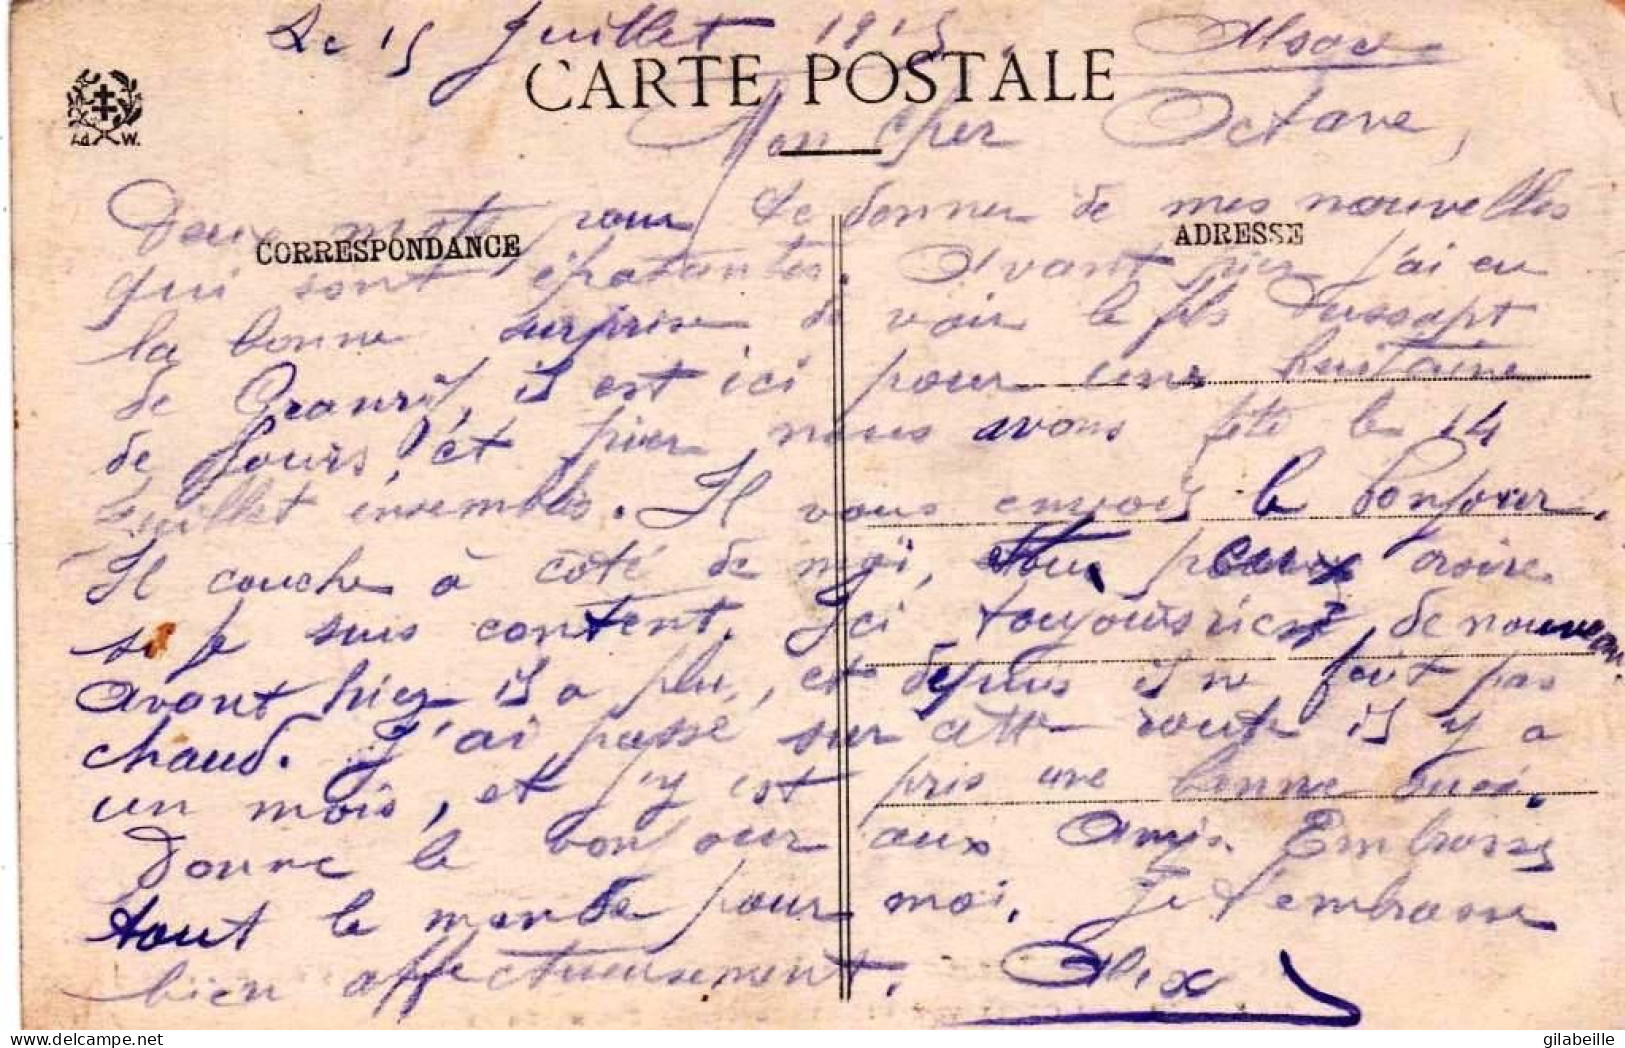 Le 15 Juillet 1915 Alsace
CARTE POSTALE
Mon cher Octave,
Ld W.
Deux mots pour te donner de mes nouvelles
CORRESPONDANCE
ADRESSE
qui sont épatantes. Avant hier j'ai eu
la bonne surprise de voir le fils Dussapt
de il est ici pour une huitaine
de jours, et hier nous avons fêté le 14
Juillet ensembles. Il vous envois le bonjour.
Il couche à côté de moi, tu peux croire
si je suis content. Ici toujours rien de nouveau
avant hier il a plu, et depuis il ne fait pas
chaud. J'ai passé sur cette route il y a
un mois, et j'y est pris une bonne suée.
Donne le bonjour aux Amis. Embrasse
tout le monde pour moi. Je t'embrasse
bien affectueusement.
Alix
gilabeille